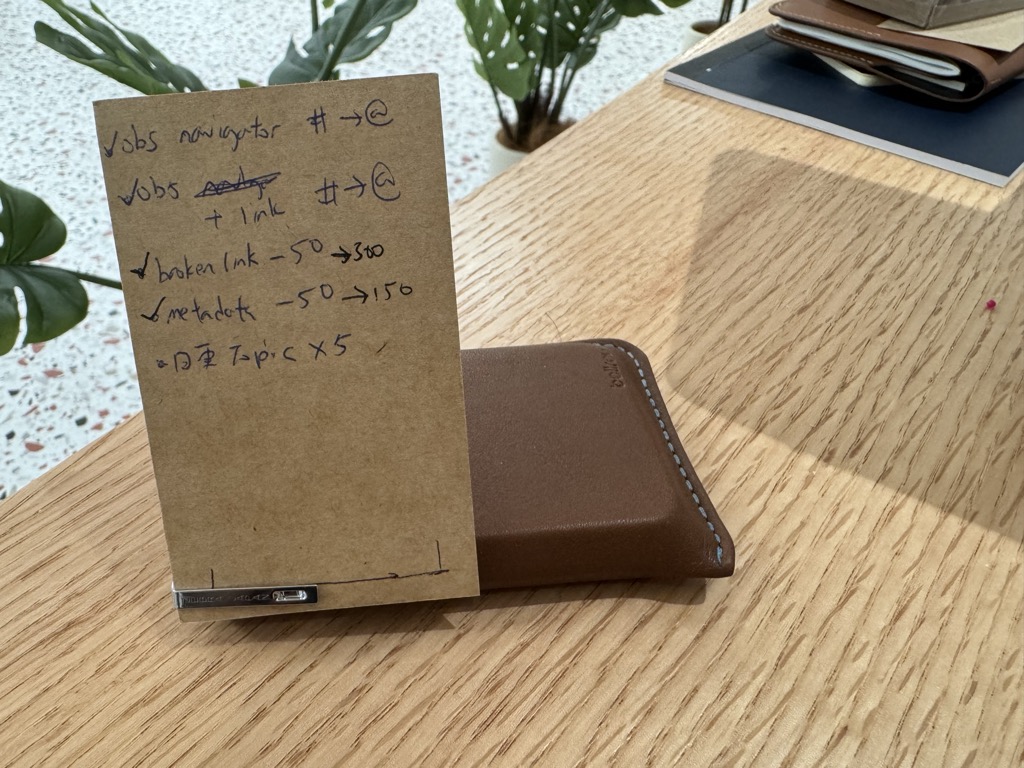 ✓obs navigator # → @
✓obs # → @
+ link
✓broken link - 50 → 300
✓metadata - 50 → 150
日更 Topic × 5